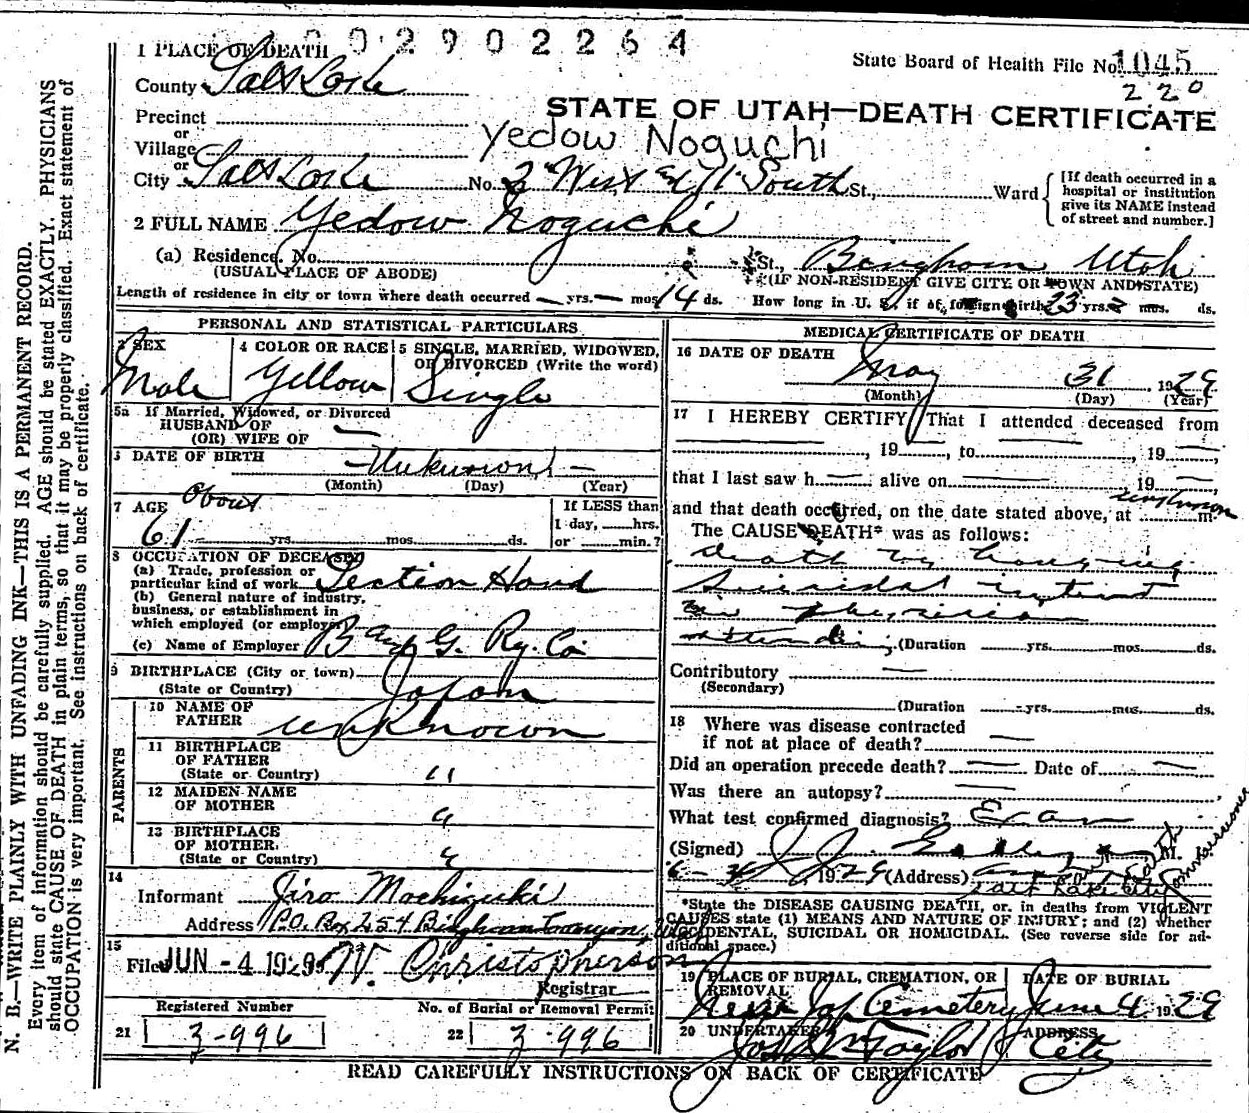 0 0 2 9 0 2 2 6 4
1 PLACE OF DEATH
State Board of Health File No. 1045
220
County Salt Lake
STATE OF UTAH—DEATH CERTIFICATE
Precinct
or
Village
Yedow Noguchi
or
City Salt Lake No. 2 West South St., Ward
[If death occurred in a hospital or institution give its NAME instead of street and number.]
2 FULL NAME Yedow Noguchi
(a) Residence. No. St., Bingham Utah
(USUAL PLACE OF ABODE) (IF NON-RESIDENT GIVE CITY OR TOWN AND STATE)
Length of residence in city or town where death occurred — yrs. — mos. 14 ds. How long in U. S. if of foreign birth 23 yrs. mos. ds.
PERSONAL AND STATISTICAL PARTICULARS
3 SEX
Male
4 COLOR OR RACE
Yellow
5 SINGLE, MARRIED, WIDOWED, OR DIVORCED (Write the word)
Single
5a If Married, Widowed, or Divorced
HUSBAND OF
(OR) WIFE OF —
6 DATE OF BIRTH
— Unknown —
(Month) (Day) (Year)
7 AGE About
61 yrs. mos. ds.
If LESS than
1 day, hrs.
or min.?
8 OCCUPATION OF DECEASED
(a) Trade, profession or
particular kind of work Section Hand
(b) General nature of industry,
business, or establishment in
which employed (or employer)
(c) Name of Employer B and G. Ry. Co
9 BIRTHPLACE (City or town)
(State or Country) Japan
PARENTS
10 NAME OF
FATHER unknown
11 BIRTHPLACE
OF FATHER
(State or Country) "
12 MAIDEN NAME
OF MOTHER "
13 BIRTHPLACE
OF MOTHER
(State or Country) "
14
Informant Jiro Mochizuki
Address P.O. Box 254 Bingham Canyon,
15
Filed JUN - 4 1929 W. Christopherson
Registrar
Registered Number
21 3-996
No. of Burial or Removal Permit
22 3-996
MEDICAL CERTIFICATE OF DEATH
16 DATE OF DEATH
May 31, 1929
(Month) (Day) (Year)
17 I HEREBY CERTIFY That I attended deceased from
, 19 , to , 19
that I last saw h alive on 19
and that death occurred, on the date stated above, at unknown m.
The CAUSE OF DEATH* was as follows:
death by hanging
suicidal intent
no physician
attending (Duration yrs. mos. ds.
Contributory —
(Secondary)
(Duration yrs. mos. ds.
18 Where was disease contracted
if not at place of death? —
Did an operation precede death? — Date of —
Was there an autopsy? —
What test confirmed diagnosis? Exam
(Signed) J. J. M.
6- , 1929 (Address) Salt Lake City Commissioner
*State the DISEASE CAUSING DEATH, or, in deaths from VIOLENT CAUSES state (1) MEANS AND NATURE OF INJURY; and (2) whether ACCIDENTAL, SUICIDAL OR HOMICIDAL. (See reverse side for additional space.)
19 PLACE OF BURIAL, CREMATION, OR REMOVAL
Jap Cemetery
DATE OF BURIAL
June 4 1929
20 UNDERTAKER
Taylor
ADDRESS
City
READ CAREFULLY INSTRUCTIONS ON BACK OF CERTIFICATE
N. B.—WRITE PLAINLY WITH UNFADING INK—THIS IS A PERMANENT RECORD.
Every item of information should be carefully supplied. AGE should be stated EXACTLY. PHYSICIANS
should state CAUSE OF DEATH in plain terms, so that it may be properly classified. Exact statement of
OCCUPATION is very important. See instructions on back of certificate.